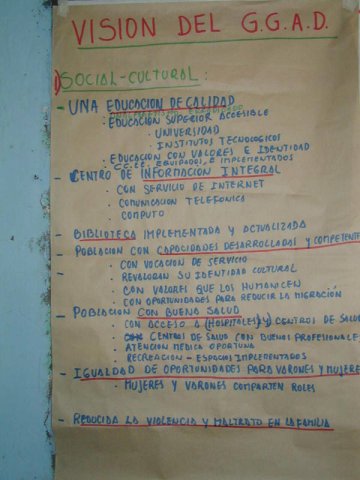 VISION DEL G.G.A.D.
1) SOCIAL-CULTURAL:
- UNA EDUCACION DE CALIDAD
• EDUCACION SUPERIOR ACCESIBLE
• UNIVERSIDAD
• INSTITUTOS TECNOLOGICOS
• EDUCACION CON VALORES E IDENTIDAD
CC.EE. EQUIPADOS E IMPLEMENTADOS
- CENTRO DE INFORMACION INTEGRAL
• CON SERVICIO DE INTERNET
• COMUNICACION TELEFONICA
• COMPUTO
- BIBLIOTECA IMPLEMENTADA Y ACTUALIZADA
- POBLACION CON CAPACIDADES DESARROLLADAS Y COMPETENTE
• CON VOCACION DE SERVICIO
• REVALORAN SU IDENTIDAD CULTURAL
• CON VALORES QUE LOS HUMANICEN
• CON OPORTUNIDADES PARA REDUCIR LA MIGRACIÓN
- POBLACION CON BUENA SALUD
• CON ACCESO A (HOSPITALES) Y CENTROS DE SALUD
• CENTROS DE SALUD CON BUENOS PROFESIONALE
• ATENCION MEDICA OPORTUNA
• RECREACION - ESPACIOS IMPLEMENTADOS
- IGUALDAD DE OPORTUNIDADES PARA VARONES Y MUJERE
• MUJERES Y VARONES COMPARTEN ROLES
- REDUCIDA LA VIOLENCIA Y MALTRATO EN LA FAMILIA